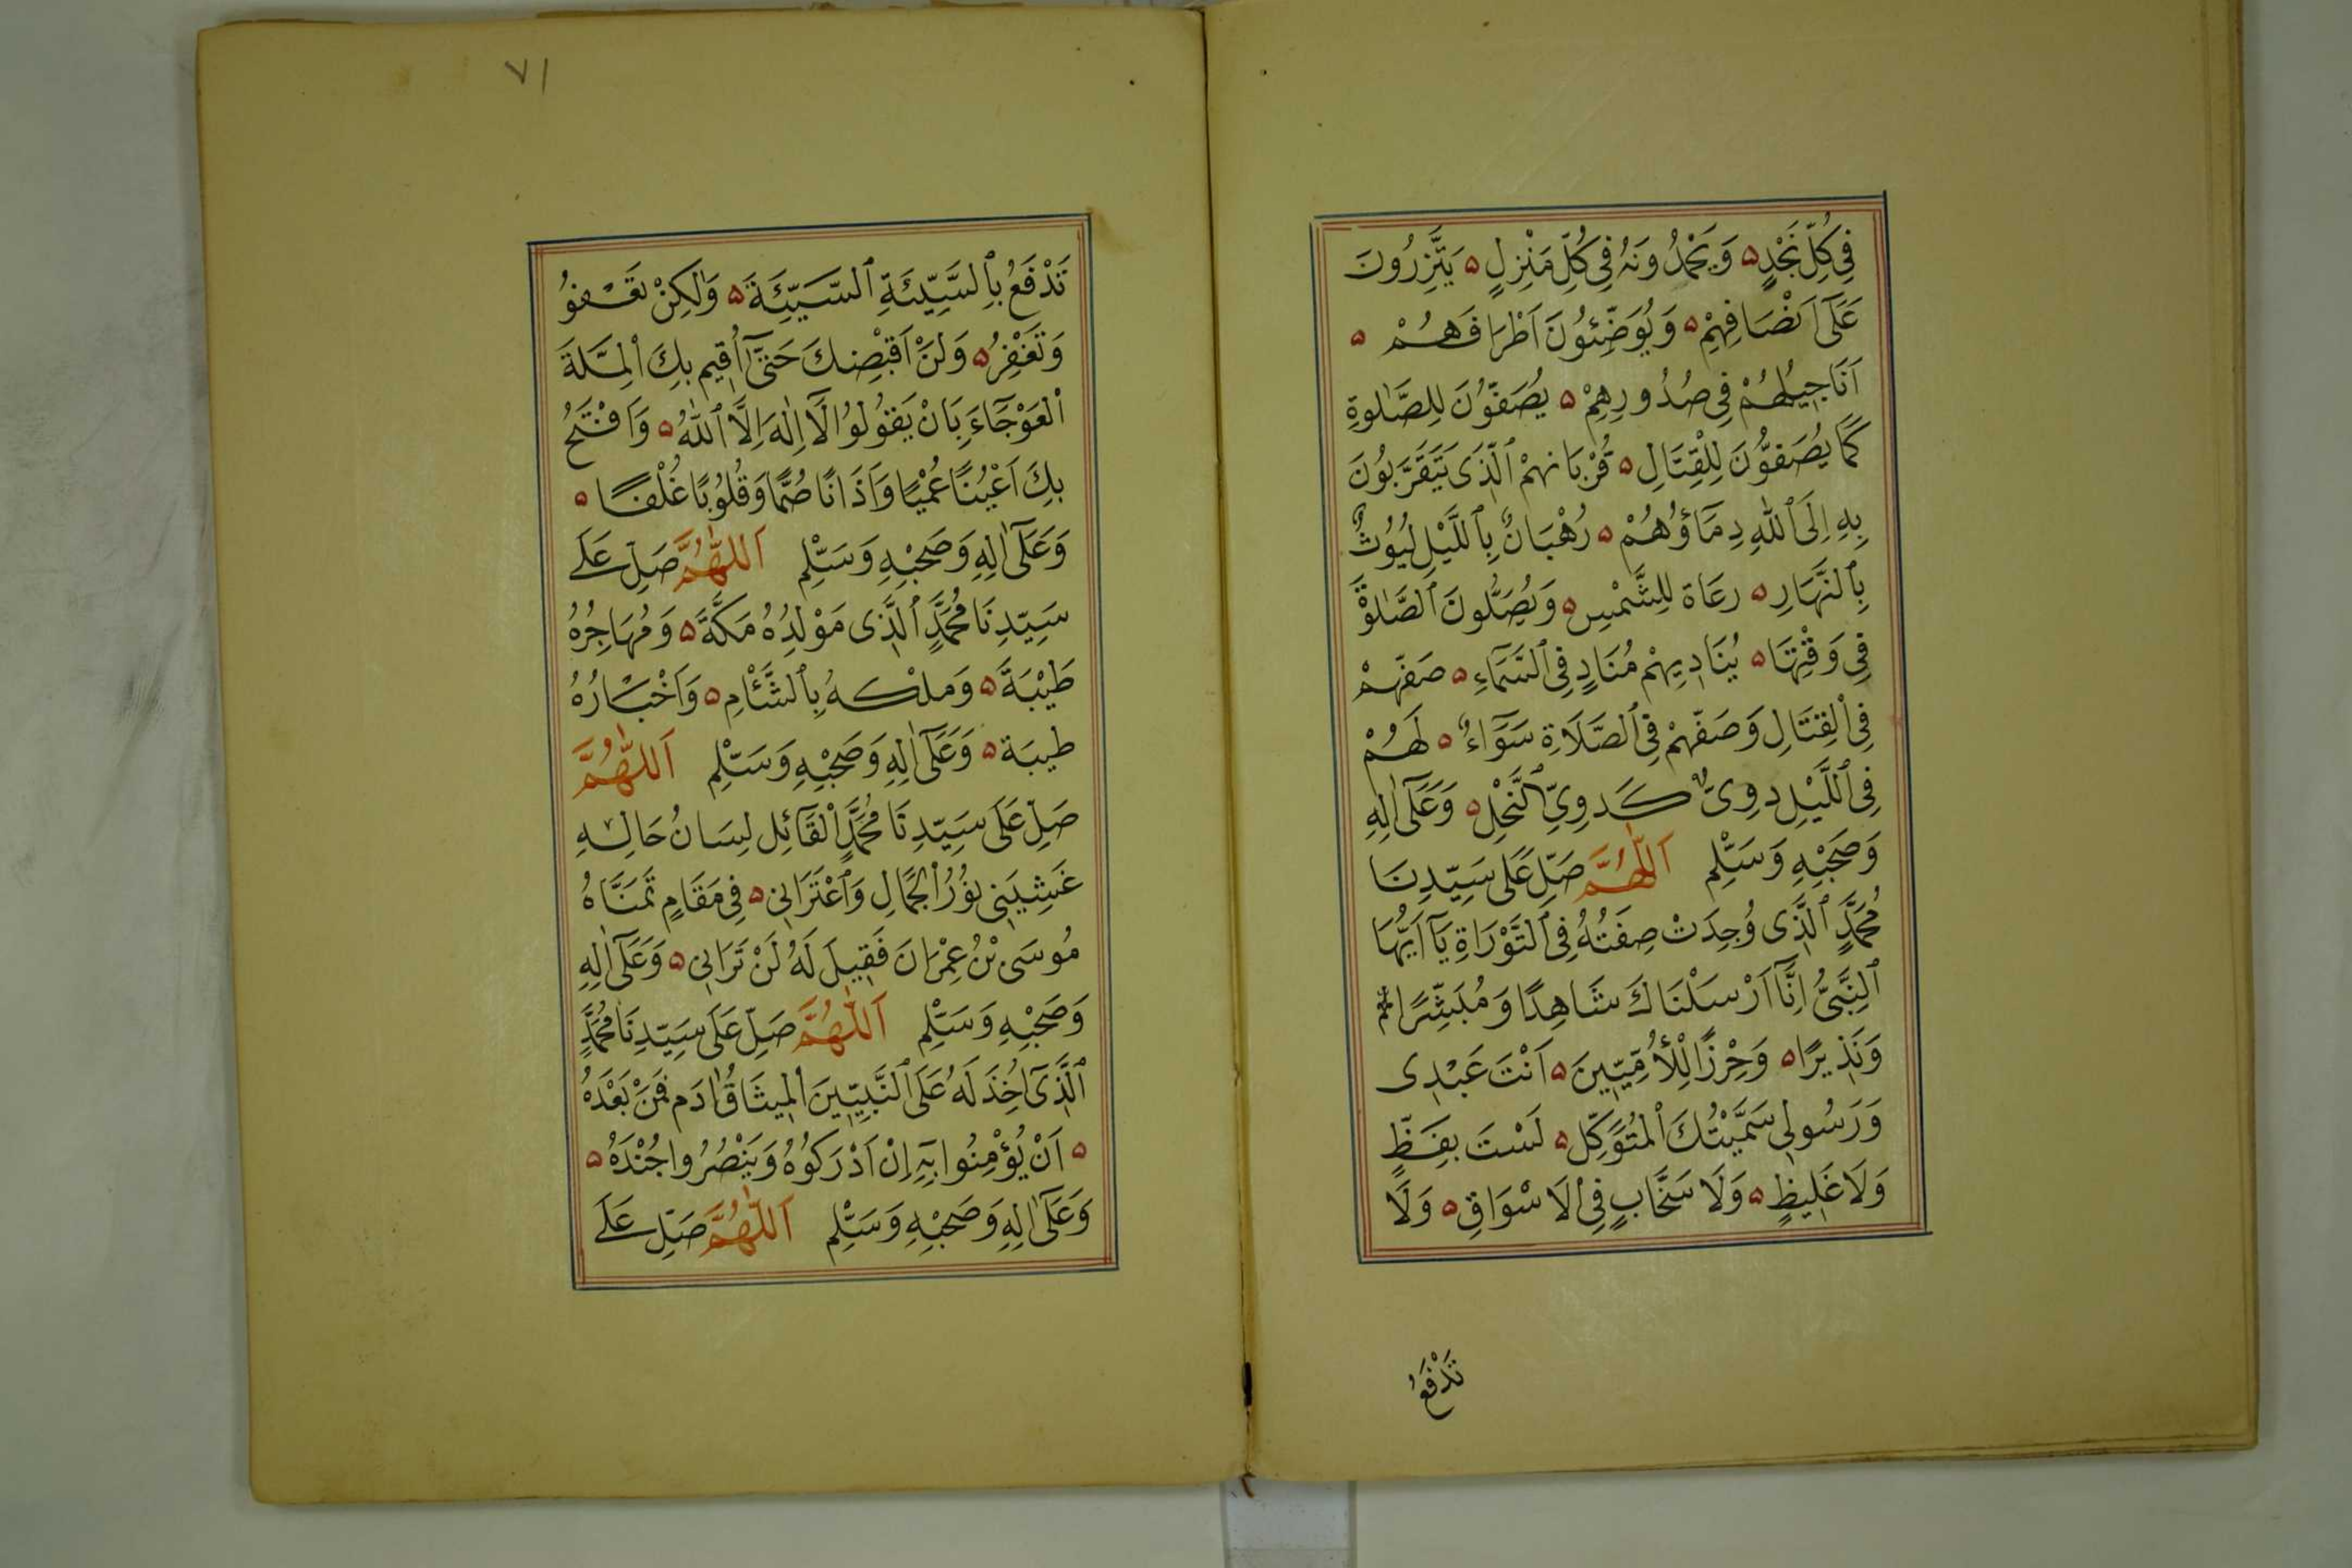 فِي كُلِّ نَجْدٍ ۵ وَيَحْمَدُونَهُ فِي كُلِّ مَنْزِلٍ ۵ يَتَّزِرُونَ
عَلَىٰٓ اَنْصَافِهِمْ ۵ وَيُوَضِّئُونَ اَطْرَافَهُمْ ۵
اَنَاجِيلُهُمْ فِي صُدُورِهِمْ ۵ يُصَفُّونَ لِلصَّلٰوةِ
كَمَا يُصَفُّونَ لِلْقِتَالِ ۵ قُرْبَانهِمْ ٱلَّذِى يَتَقَرَّبُونَ
بِهِ اِلَى ٱللهِ دِمَاؤُهُمْ ۵ رُهْبَانٌ بِٱللَّيْلِ لُيُوثٌ
بِٱلنَّهَارِ ۵ رعَاة لِلشَّمْسِ ۵ وَيُصَلُّونَ ٱلصَّلٰوةَ
فِي وَقْتِهَا ۵ يُنَادِيهِمْ مُنَادٍ فِي ٱلسَّمَآءِ ۵ صَفّهمْ
فِي ٱلْقِتَالِ وَصَفّهمْ فِي ٱلصَّلَاةِ سَوَآءٌ ۵ لَهُمْ
فِي ٱللَّيْلِ دوِىٌّ كَدوِيِّ ٱلنَّحْلِ ۵ وَعَلَىٰٓ اٰلِهِ
وَصَحْبِهِ وَسَلِّم اَللّٰهُمَّ صَلِّ عَلَى سَيِّدِنَا
مُحَمَّدٍ ٱلَّذِى وُجِدَتْ صِفَتُهُ فِي ٱلتَّوْرَاةِ يَآ اَيُّهَا
ٱلنَّبِىُّ اِنَّآ اَرْسَلْنَاكَ شَاهِدًا وَمُبَشِّرًا
وَنَذِيرًا ۵ وَحِرْزًا لِلْأُمِّيِّينَ ۵ اَنْتَ عَبْدِى
وَرَسُولِي سَمَّيْتُكَ ٱلْمُتَوَكِّل ۵ لَسْتَ بِفَظٍّ
وَلَا غَلِيظٍ ۵ وَلَا سَخَّابٍ فِي ٱلَاسْوَاقِ ۵ وَلَا
تَدْفَعُ
٧١
تَدْفَعُ بِٱلسَّيِّئَةِ ٱلسَّيِّئَةَ ۵ وَلٰكِنْ تَعْفُو
وَتَغْفِرُ ۵ وَلَنْ اَقْبِضكَ حَتىّٰٓ اُقِيم بِكَ ٱلْمِلَّةَ
ٱلْعَوْجَآءَ بِاَنْ يَقُولُوا لَآ اِلٰهَ اِلَّا ٱللهُ ۵ وَاَفْتَحُ
بِكَ اَعْيُنًا عُمْيًا وَاَذَانًا صُمًّا وَقُلُوبًا غُلْفًا ۵
وَعَلَىٰٓ اٰلِهِ وَصَحْبِهِ وَسَلِّم اَللّٰهُمَّ صَلِّ عَلَى
سَيِّدِنَا مُحَمَّدٍ ٱلَّذِى مَوْلِدُهُ مَكَّةَ ۵ وَمُهَاجِرُهُ
طَيْبَةَ ۵ وَملْكهُ بِٱلشَّاْمِ ۵ وَاَخْبَارُهُ
طيبَة ۵ وَعَلَىٰٓ اٰلِهِ وَصَحْبِهِ وَسَلِّم اَللّٰهُمَّ
صَلِّ عَلَى سَيِّدِنَا مُحَمَّدٍ ٱلْقَآئِل لِسَانُ حَالِهِ
غَشِيَنِي نُورُ ٱلْجَمَالِ وَٱعْتَرَانِي ۵ فِي مَقَامٍ تَمَنَّاهُ
مُوسَى بْنُ عِمْرَانَ فَقِيلَ لَهُ لَنْ تَرَانِي ۵ وَعَلَىٰٓ اٰلِهِ
وَصَحْبِهِ وَسَلِّم اَللّٰهُمَّ صَلِّ عَلَى سَيِّدِنَا مُحَمَّدٍ
ٱلَّذِىٓ اُخِذَ لَهُ عَلَى ٱلنَّبِيِّينَ ٱلْمِيثَاقُ اٰدَم فَمَنْ بَعْدَهُ
۵ اَنْ يُؤْمِنُوا بِهِٓ اِنْ اَدْرَكُوهُ وَيَنْصُرُوا جُنْدَهُ ۵
وَعَلَىٰٓ اٰلِهِ وَصَحْبِهِ وَسَلِّم اَللّٰهُمَّ صَلِّ عَلَى